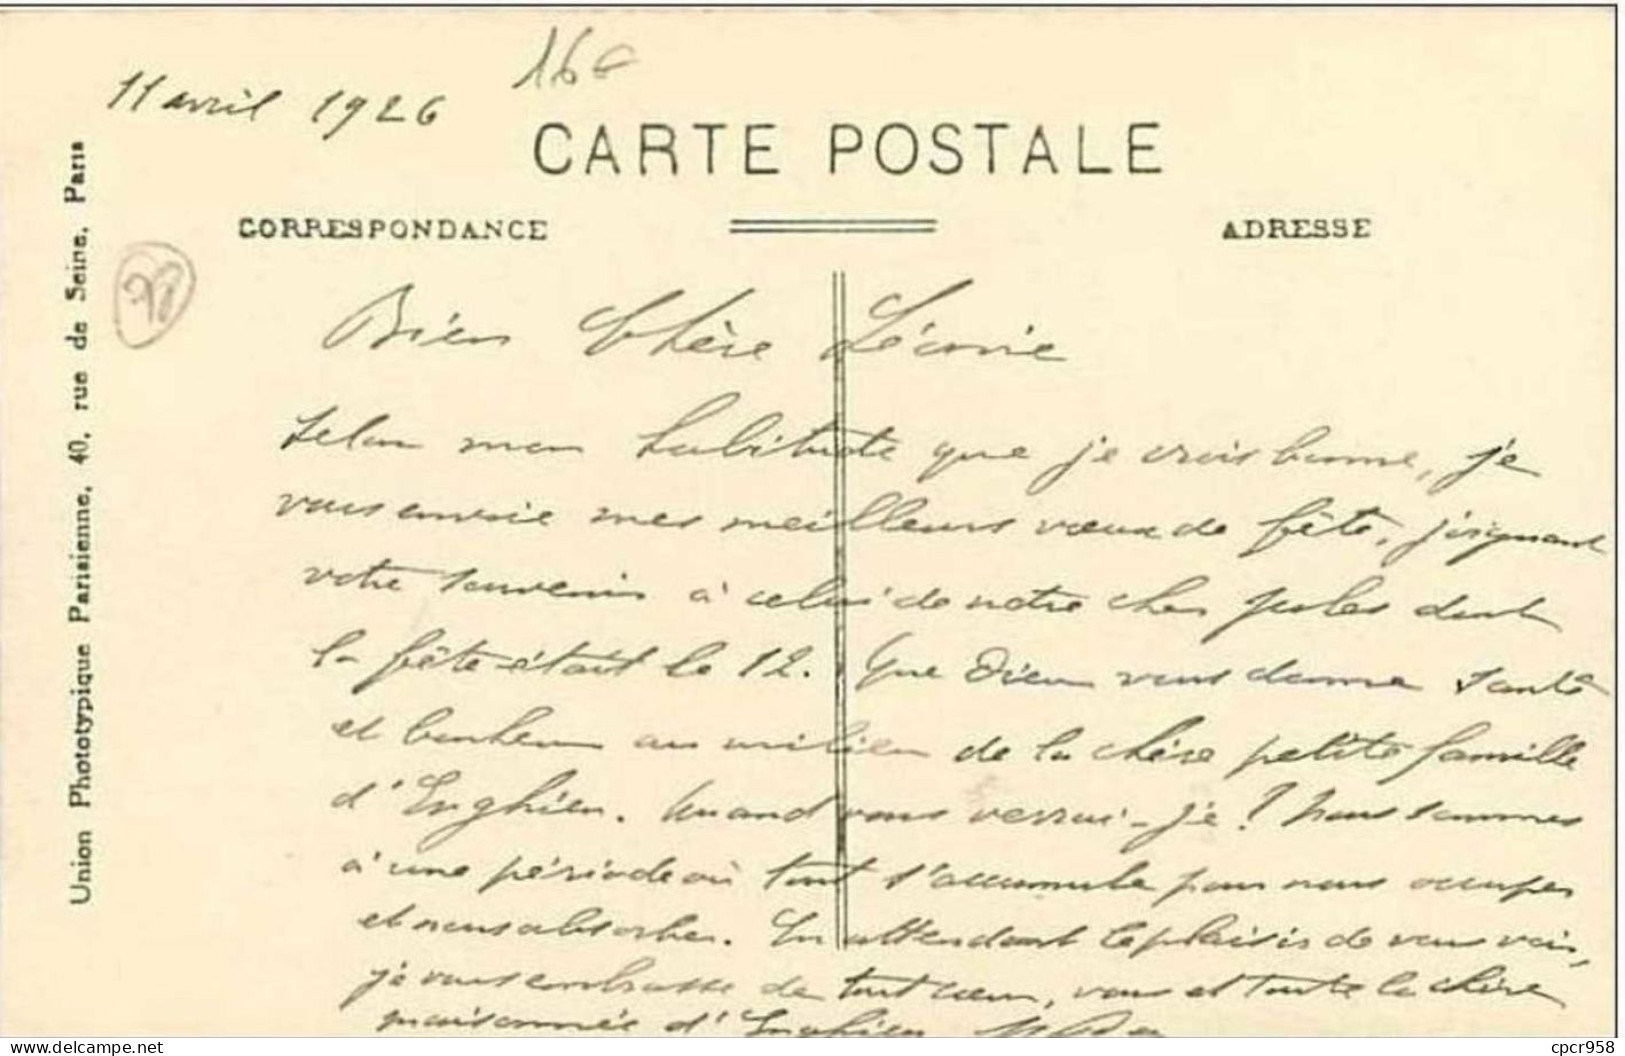 11 avril 1926
16e
CARTE POSTALE
CORRESPONDANCE
ADRESSE
Union Phototypique Parisienne, 40, rue de Seine, Paris
Bien Chère Léonie
Selon mon habitude que je crois bonne, je
vous envoie mes meilleurs vœux de fête, joignant
votre souvenir à celui de notre cher Jules dont
la fête était le 12. Que Dieu vous donne santé
et bonheur au milieu de la chère petite famille
d'Enghien. Quand vous verrai-je ? Nous sommes
à une période où tout s'accumule pour nous occuper
et nous absorber. En attendant le plaisir de vous voir,
je vous embrasse de tout cœur, vous et toute la chère
maisonnée d'Enghien
www.delcampe.net
cpcr958